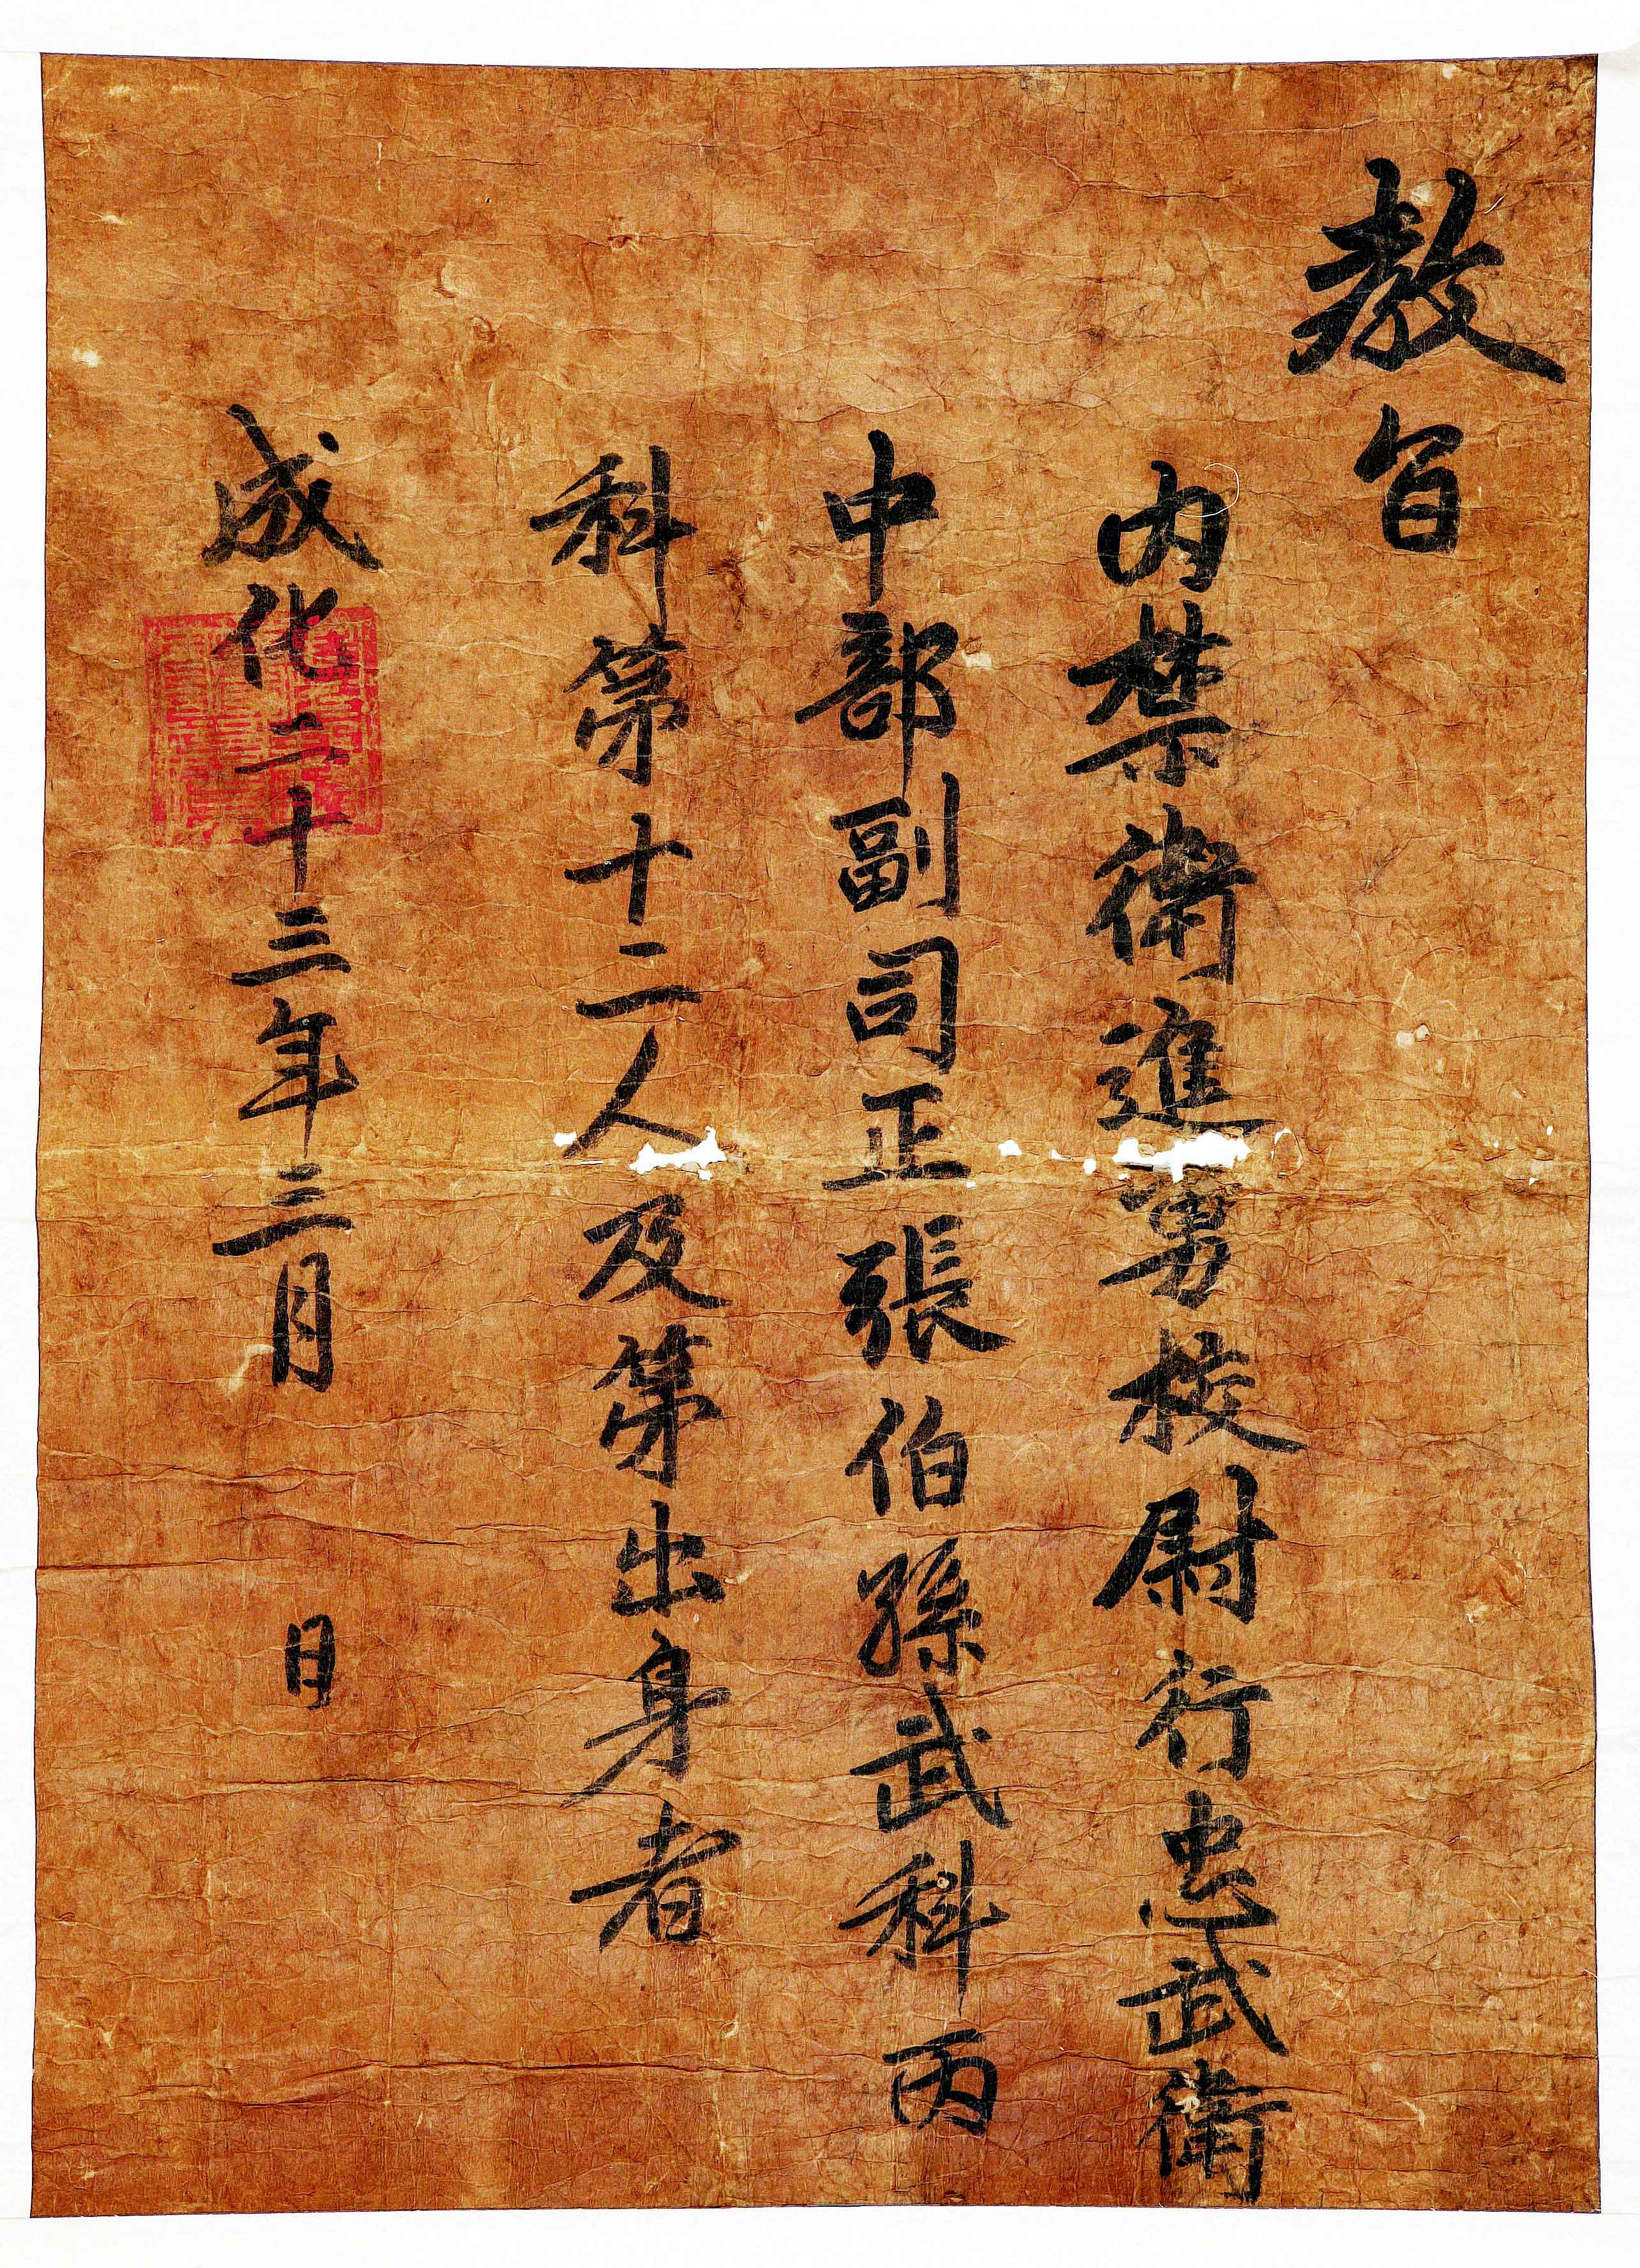 教旨
內禁衛進勇校尉行忠武衛
中部副司正張伯孫武科丙
科第十二人及第出身者
成化二十三年三月　日